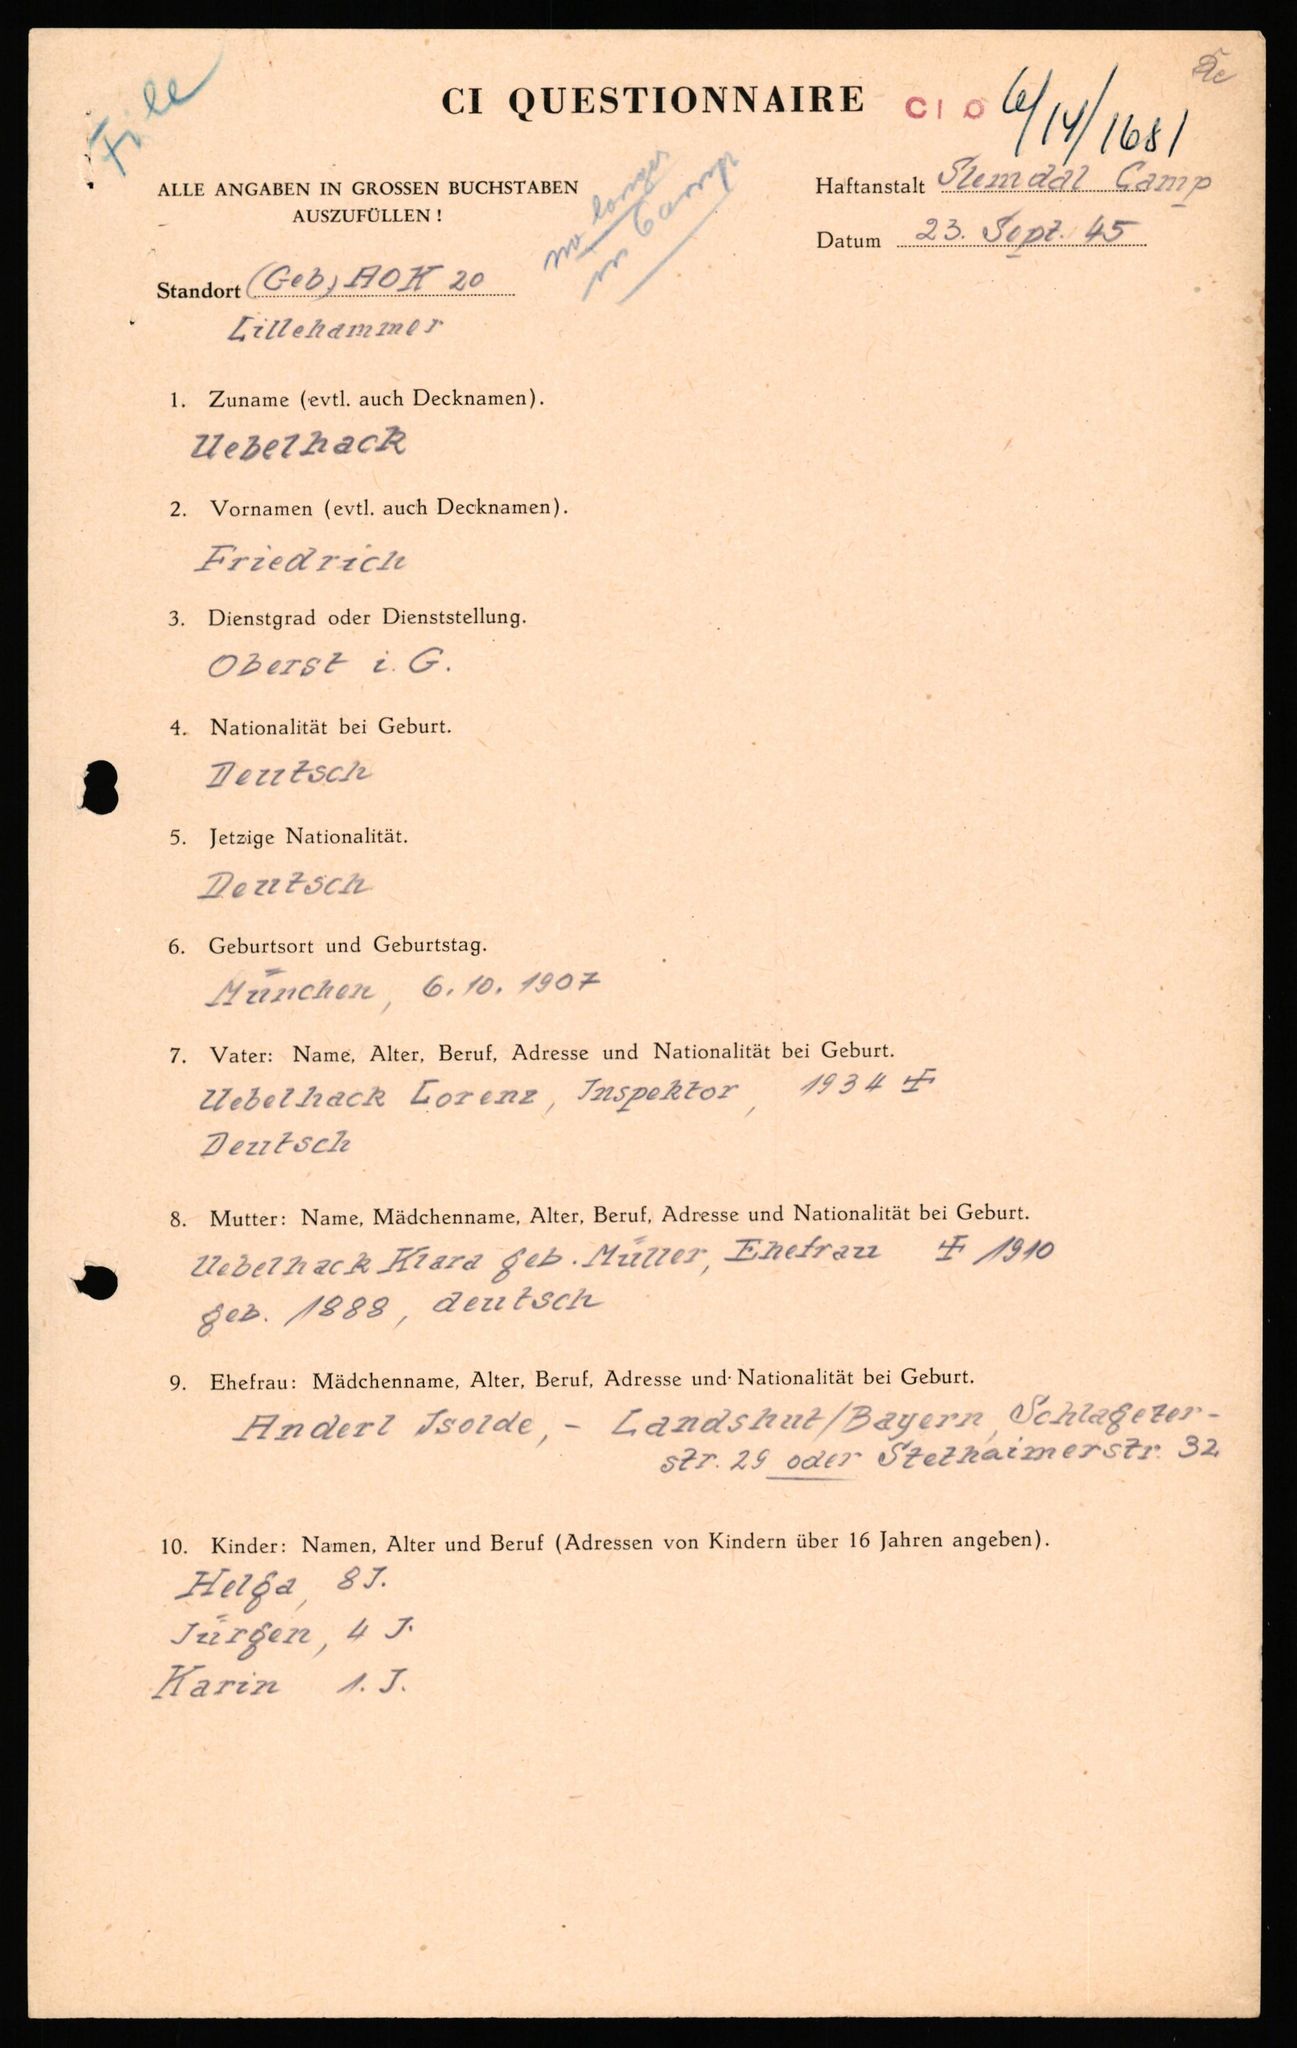 File
CI QUESTIONNAIRE
CI O 6/14/1681
ALLE ANGABEN IN GROSSEN BUCHSTABEN
AUSZUFÜLLEN !
no longer
in Camp
Haftanstalt Slemdal Camp
Datum 23. Sept. 45
Standort (Geb) AOK 20
Lillehammer
1. Zuname (evtl. auch Decknamen).
Uebelhack
2. Vornamen (evtl. auch Decknamen).
Friedrich
3. Dienstgrad oder Dienststellung.
Oberst i. G.
4. Nationalität bei Geburt.
Deutsch
5. Jetzige Nationalität.
Deutsch
6. Geburtsort und Geburtstag.
München, 6. 10. 1907
7. Vater: Name, Alter, Beruf, Adresse und Nationalität bei Geburt.
Uebelhack Lorenz, Inspektor, 1934 ‡
Deutsch
8. Mutter: Name, Mädchenname, Alter, Beruf, Adresse und Nationalität bei Geburt.
Uebelhack Klara geb. Müller, Ehefrau ‡ 1910
geb. 1888, deutsch
9. Ehefrau: Mädchenname, Alter, Beruf, Adresse und Nationalität bei Geburt.
Anderl Isolde, - Landshut/Bayern, Schlageter-
str. 29 oder Stethaimerstr. 32
10. Kinder: Namen, Alter und Beruf (Adressen von Kindern über 16 Jahren angeben).
Helga, 8 J.
Jürgen, 4 J.
Karin 1. J.